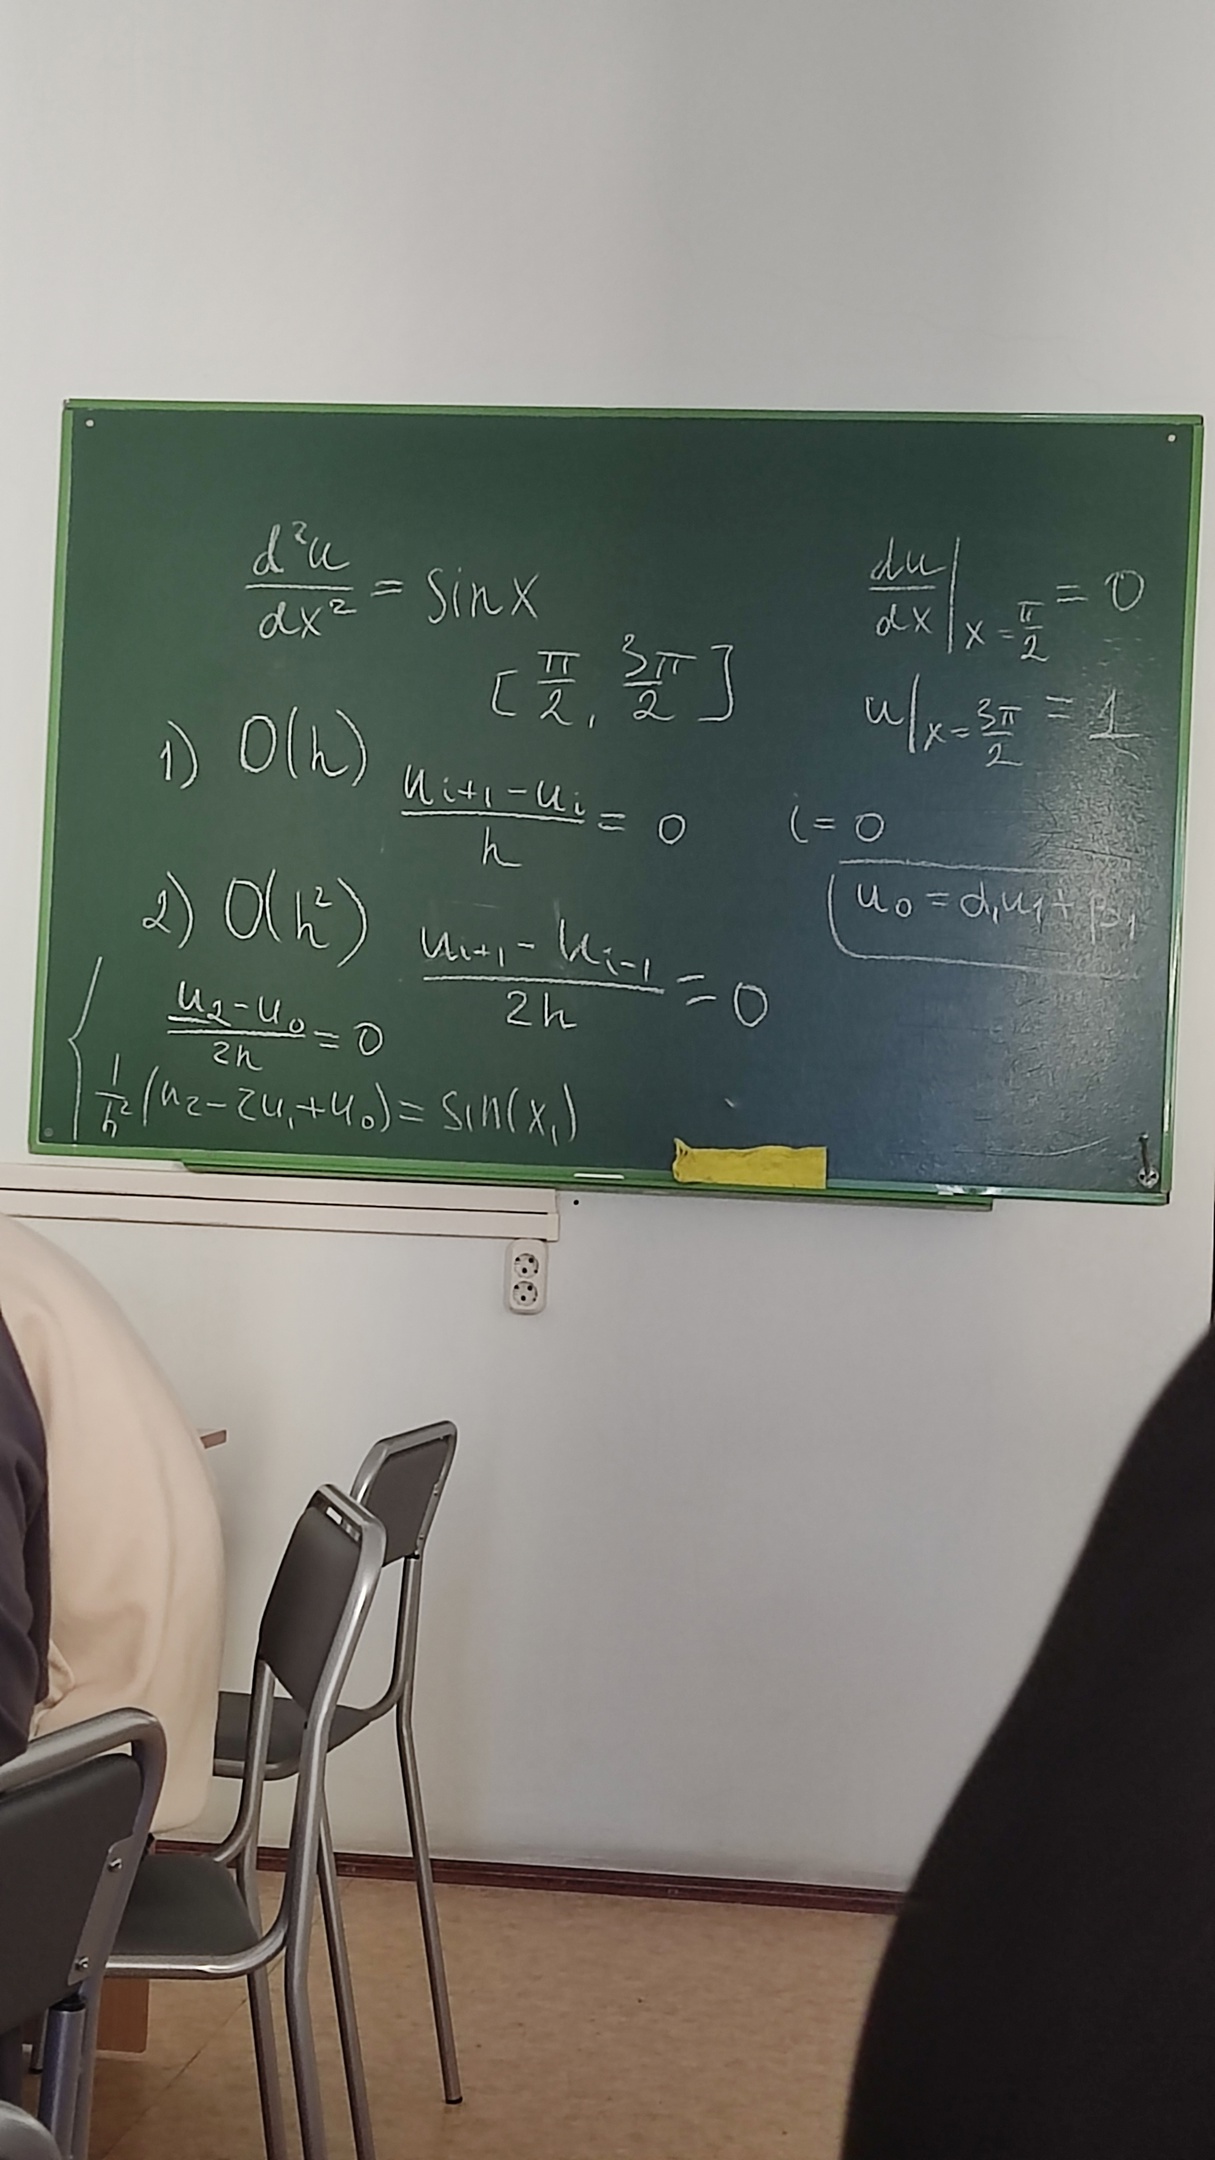 d²u/dx² = sin x
[π/2, 3π/2]
du/dx|x=π/2 = 0
u|x=3π/2 = 1
1) O(h) (uᵢ₊₁ - uᵢ)/h = 0 i = 0
u₀ = α₁u₁ + β₁
2) O(h²) (uᵢ₊₁ - uᵢ₋₁)/2h = 0
{ (u₂ - u₀)/2h = 0
1/h² (u₂ - 2u₁ + u₀) = sin(x₁)